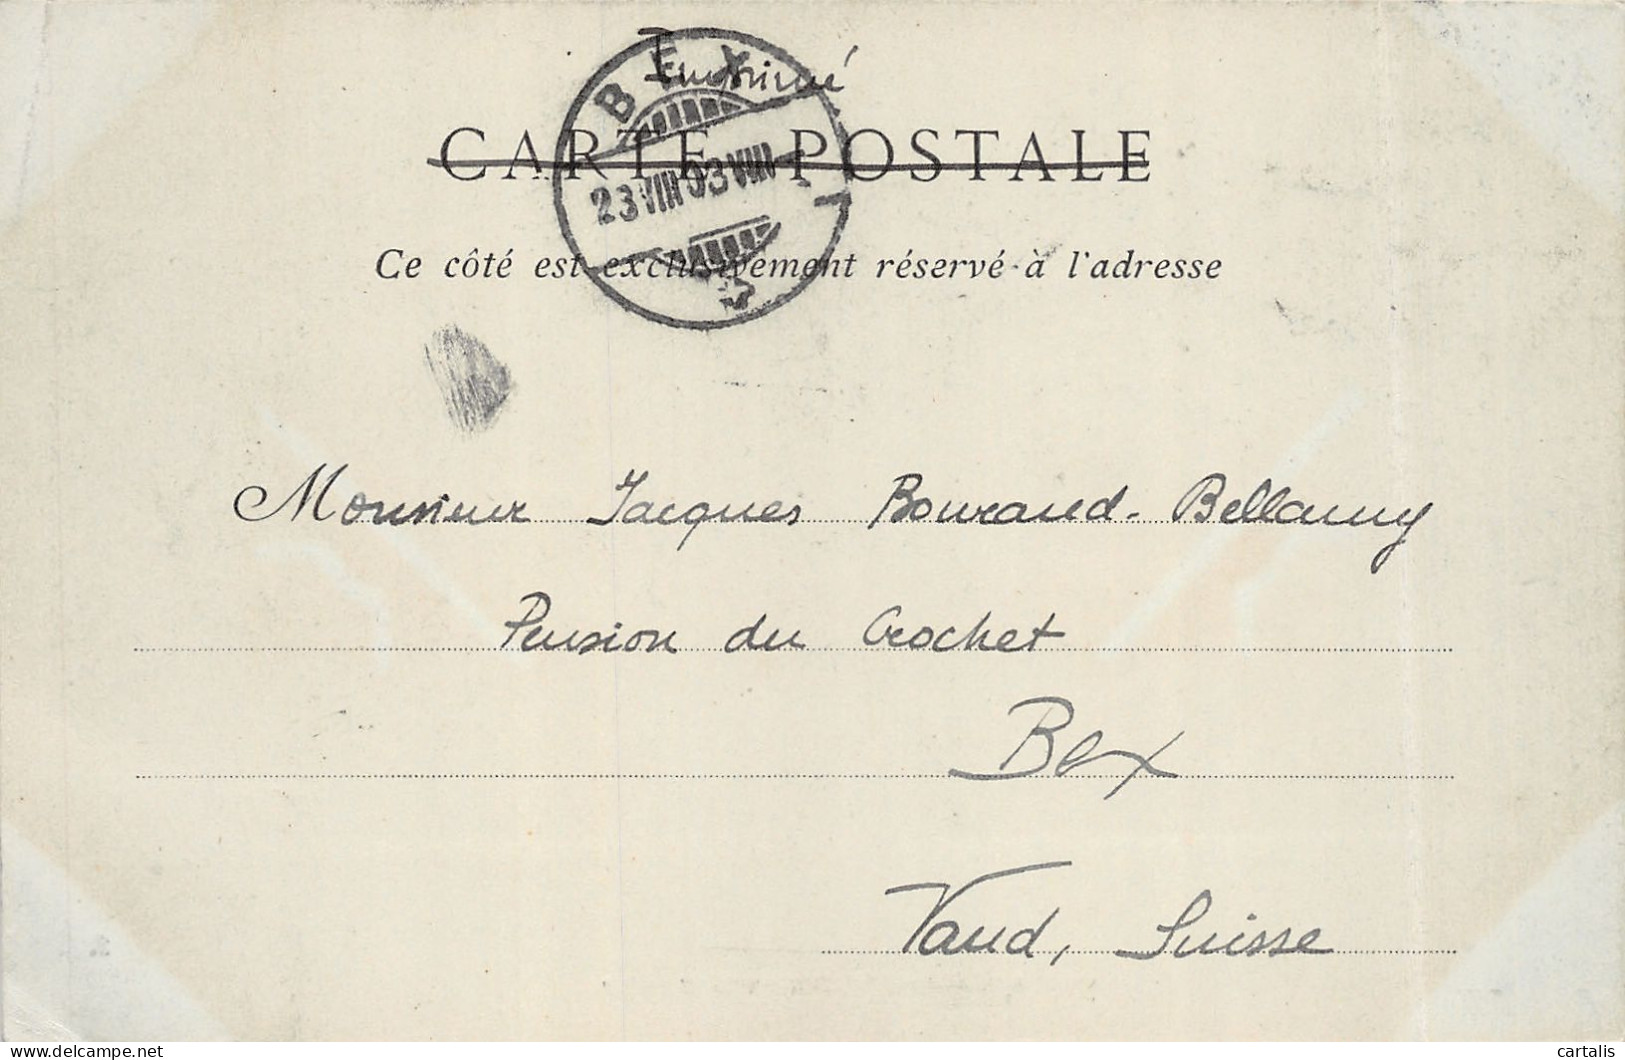 Imprimé
BEX
CARTE POSTALE
23 VIII 03 VIII
Ce côté est exclusivement réservé à l'adresse
Monsieur Jacques Bouraud-Bellamy
Pension du Crochet
Bex
Vaud, Suisse
delcampe.net
cartalis